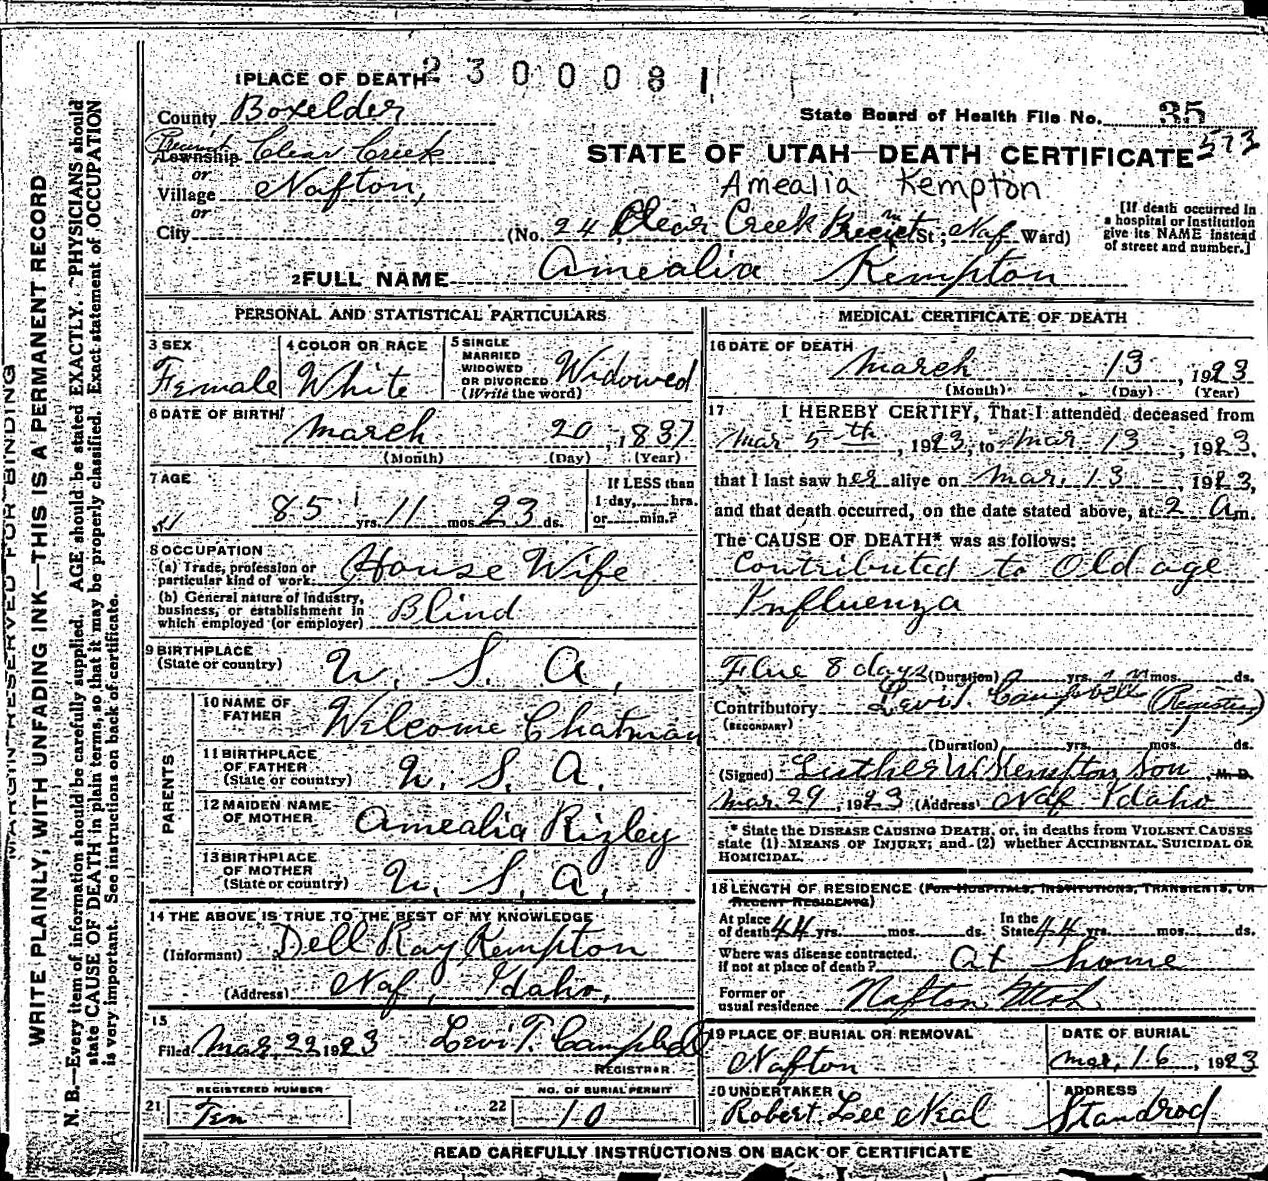 1 PLACE OF DEATH
2300081
County Boxelder
State Board of Health File No. 35
573
Precinct
Township Clear Creek
or
STATE OF UTAH—DEATH CERTIFICATE
Village Nafton,
or
Amealia Kempton
City
(No. 24, Clear Creek Precinct St; Naf Ward)
[If death occurred in
a hospital or institution
give its NAME instead
of street and number.]
2 FULL NAME Amealia Kempton
PERSONAL AND STATISTICAL PARTICULARS
3 SEX
Female
4 COLOR OR RACE
White
5 SINGLE
MARRIED
WIDOWED
OR DIVORCED
(Write the word)
Widowed
6 DATE OF BIRTH
March 20, 1837
(Month) (Day) (Year)
7 AGE
85 yrs. 11 mos. 23 ds.
If LESS than
1 day, hrs.
or min.?
8 OCCUPATION
(a) Trade, profession or
particular kind of work. House Wife
(b) General nature of industry,
business, or establishment in
which employed (or employer) Blind
9 BIRTHPLACE
(State or country) U. S. A,
PARENTS
10 NAME OF
FATHER Welcome Chatman
11 BIRTHPLACE
OF FATHER
(State or country) U. S. A.
12 MAIDEN NAME
OF MOTHER Amealia Rizley
13 BIRTHPLACE
OF MOTHER
(State or country) U. S. A.
14 THE ABOVE IS TRUE TO THE BEST OF MY KNOWLEDGE
(Informant) Dell Ray Kempton
(Address) Naf, Idaho,
15
Filed Mar. 22 1923 Levi T. Campbell
REGISTRAR
REGISTERED NUMBER
21 Ten
NO. OF BURIAL PERMIT
22 10
MEDICAL CERTIFICATE OF DEATH
16 DATE OF DEATH
March 13, 1923
(Month) (Day) (Year)
17 I HEREBY CERTIFY, That I attended deceased from
Mar 5th, 1923, to Mar 13, 1923,
that I last saw her alive on Mar. 13, 1923,
and that death occurred, on the date stated above, at 2 Am.
The CAUSE OF DEATH* was as follows:
Contributed to Old age
Influenza
Flue 8 days (Duration) yrs. mos. ds.
Contributory Levi T. Campbell (Registrar)
(SECONDARY)
(Duration) yrs. mos. ds.
(Signed) Luther W Kempton Son M. D.
Mar. 29, 1923 (Address) Naf Idaho
* State the DISEASE CAUSING DEATH, or, in deaths from VIOLENT CAUSES
state (1) MEANS OF INJURY; and (2) whether ACCIDENTAL SUICIDAL OR
HOMICIDAL.
18 LENGTH OF RESIDENCE (FOR HOSPITALS, INSTITUTIONS, TRANSIENTS, OR
RECENT RESIDENTS)
At place
of death 44 yrs. mos. ds.
In the
State 44 yrs. mos. ds.
Where was disease contracted,
if not at place of death? at home
Former or
usual residence Nafton Utah
19 PLACE OF BURIAL OR REMOVAL
Nafton
DATE OF BURIAL
Mar, 16, 1923
20 UNDERTAKER
Robert Lee Neal
ADDRESS
Standrod
READ CAREFULLY INSTRUCTIONS ON BACK OF CERTIFICATE
MARGIN RESERVED FOR BINDING
WRITE PLAINLY, WITH UNFADING INK—THIS IS A PERMANENT RECORD
N. B.—Every item of information should be carefully supplied. AGE should be stated EXACTLY. PHYSICIANS should
state CAUSE OF DEATH in plain terms, so that it may be properly classified. Exact statement of OCCUPATION
is very important. See instructions on back of certificate.